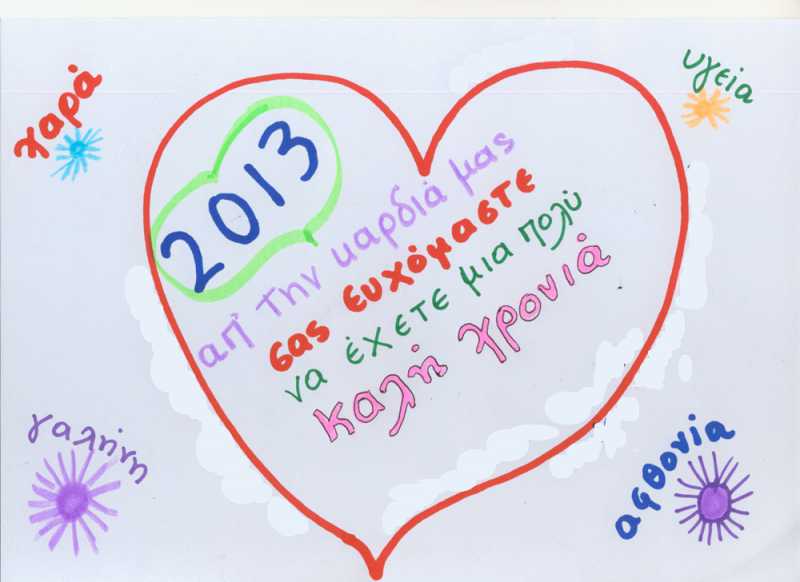 χαρά
υγεία
2013
απ' την καρδιά μας
σας ευχόμαστε
να έχετε μια πολύ
καλή χρονιά
γαλήνη
αφθονία